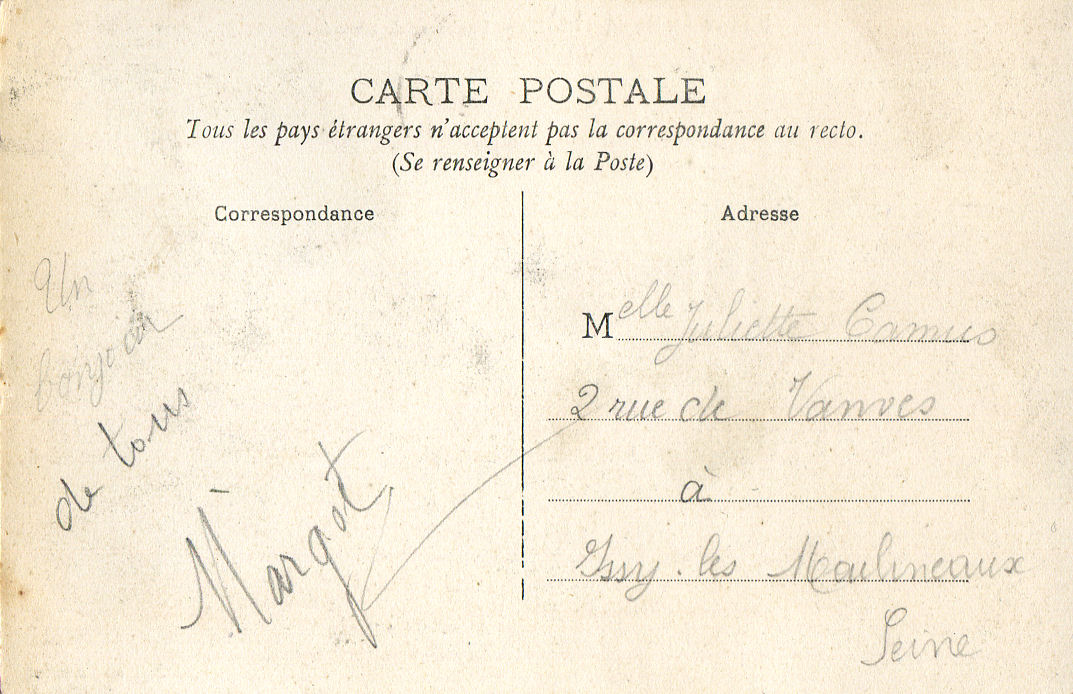 CARTE POSTALE
Tous les pays étrangers n'acceptent pas la correspondance au recto.
(Se renseigner à la Poste)
Correspondance
Un
bonjour
de tous
Margot
Adresse
Melle Juliette Camus
2 rue de Vanves
à
Issy. les Moulineaux
Seine